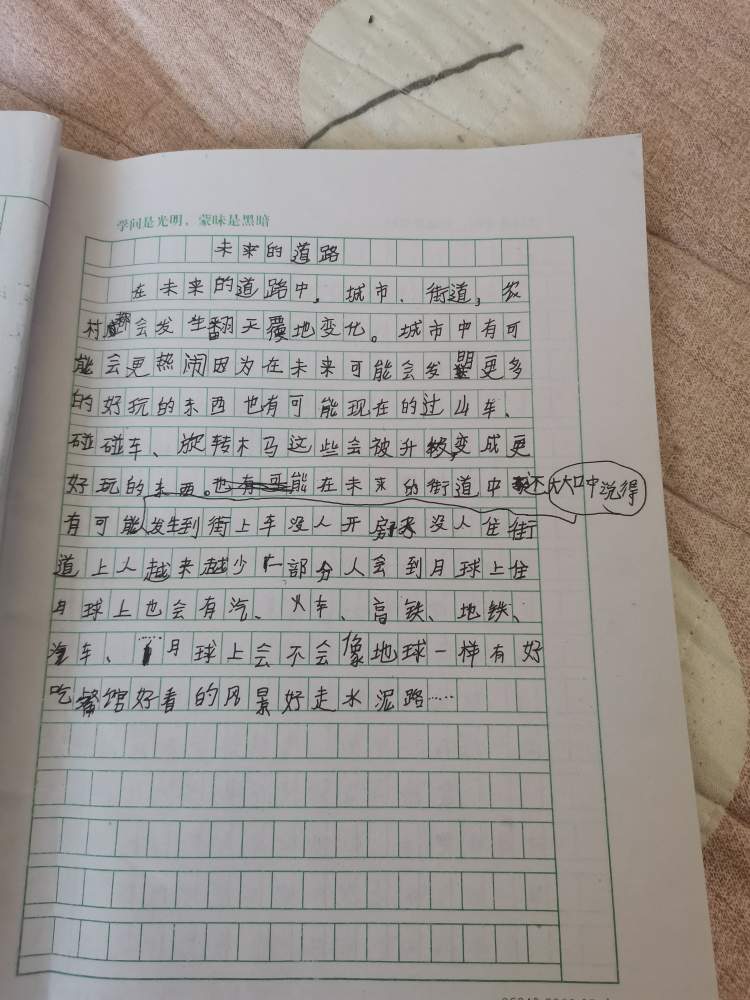 学问是光明，蒙昧是黑暗
未来的道路
在未来的道路中，城市、街道，农
村都会发生翻天覆地变化。城市中有可
能会更热闹因为在未来可能会发明更多
的好玩的东西也有可能现在的过山车、
碰碰车、旋转木马这些会被升级，变成更
好玩的东西。也有可能在未来的街道中还大大口中说得
有可能发生到街上车没人开房子没人住街
道上人越来越少一部分人会到月球上住
月球上也会有汽、火车、高铁、地铁、
汽车、……月球上会不会像地球一样有好
吃餐馆好看的风景好走水泥路……